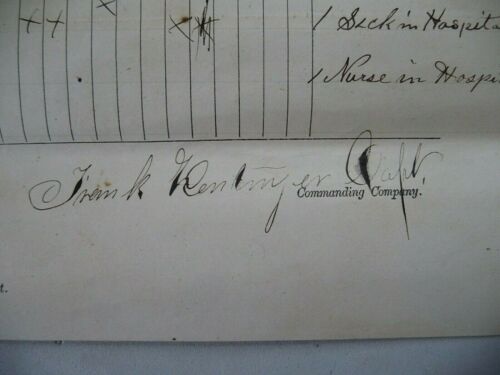 1 Sick in Hospita
1 Nurse in Hospi
Frank Capt.
Commanding Company.
t.